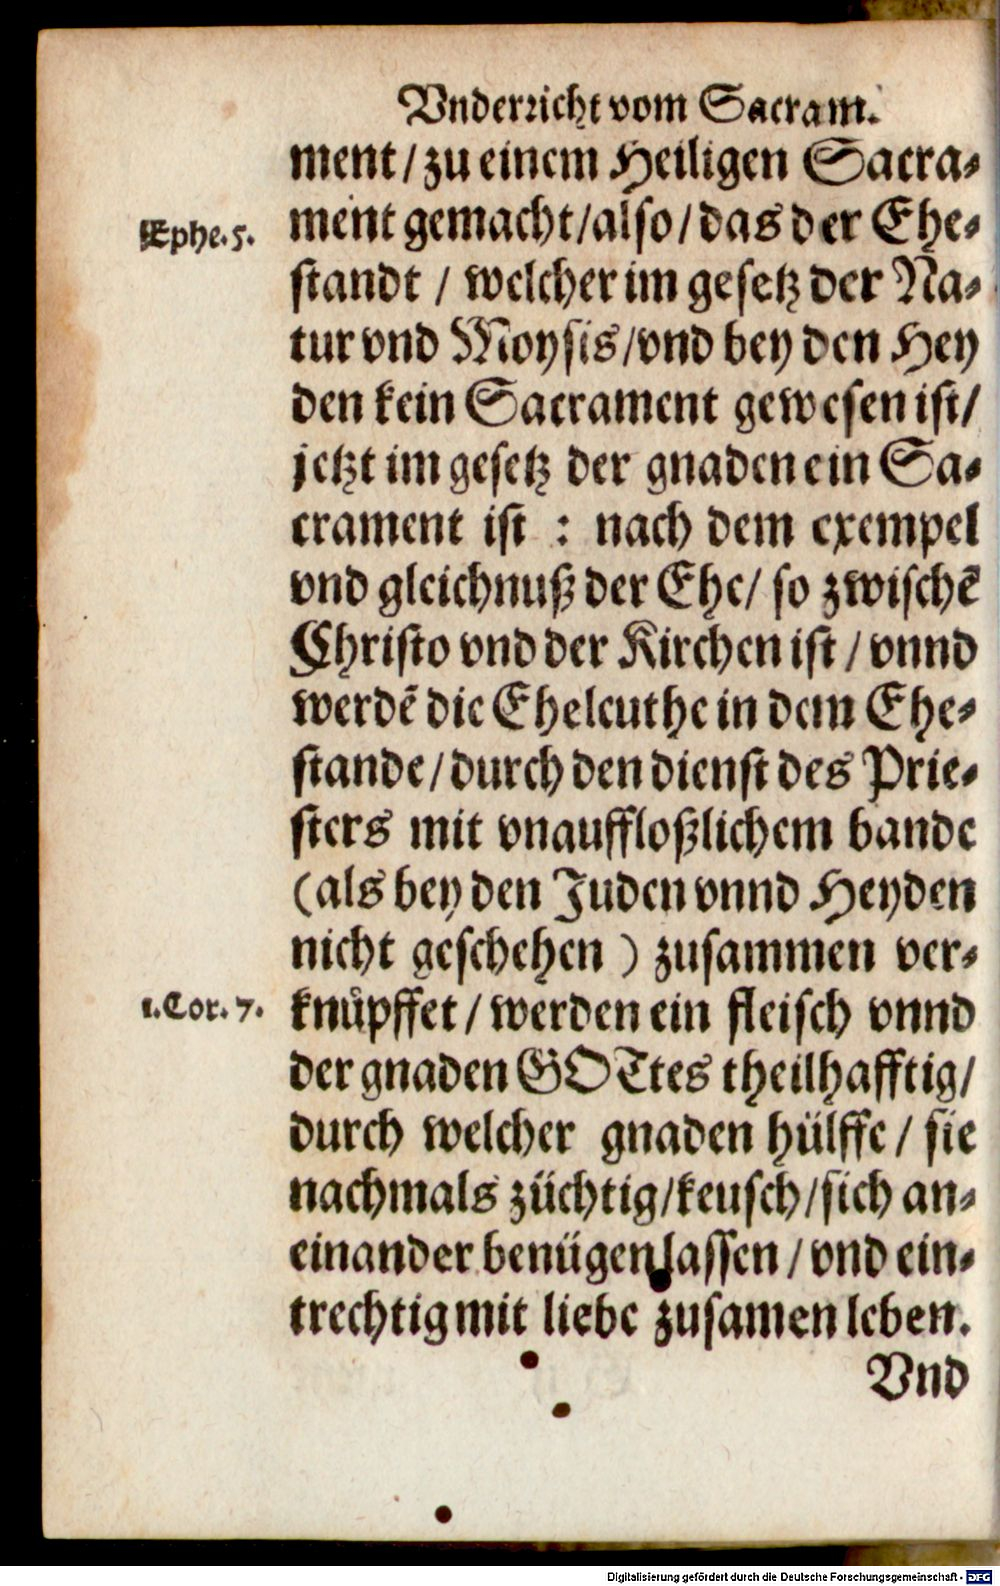 Vnderricht vom Sacram.
ment / zu einem Heiligen Sacra-
Ephe. 5.
ment gemacht / also / das der Ehe-
standt / welcher im gesetz der Na-
tur vnd Moysis / vnd bey den Hey
den kein Sacrament gewesen ist /
jetzt im gesetz der gnaden ein Sa-
crament ist : nach dem exempel
vnd gleichnuß der Ehe / so zwischẽ
Christo vnd der Kirchen ist / vnnd
werdẽ die Eheleuthe in dem Ehe-
stande / durch den dienst des Prie-
sters mit vnauffloßlichem bande
(als bey den Juden vnnd Heyden
nicht geschehen ) zusammen ver-
1. Cor. 7.
knüpffet / werden ein fleisch vnnd
der gnaden GOTtes theilhafftig /
durch welcher gnaden hülffe / sie
nachmals züchtig / keusch / sich an-
einander benügen lassen / vnd ein-
trechtig mit liebe zusamen leben.
Vnd
Digitalisierung gefördert durch die Deutsche Forschungsgemeinschaft - DFG